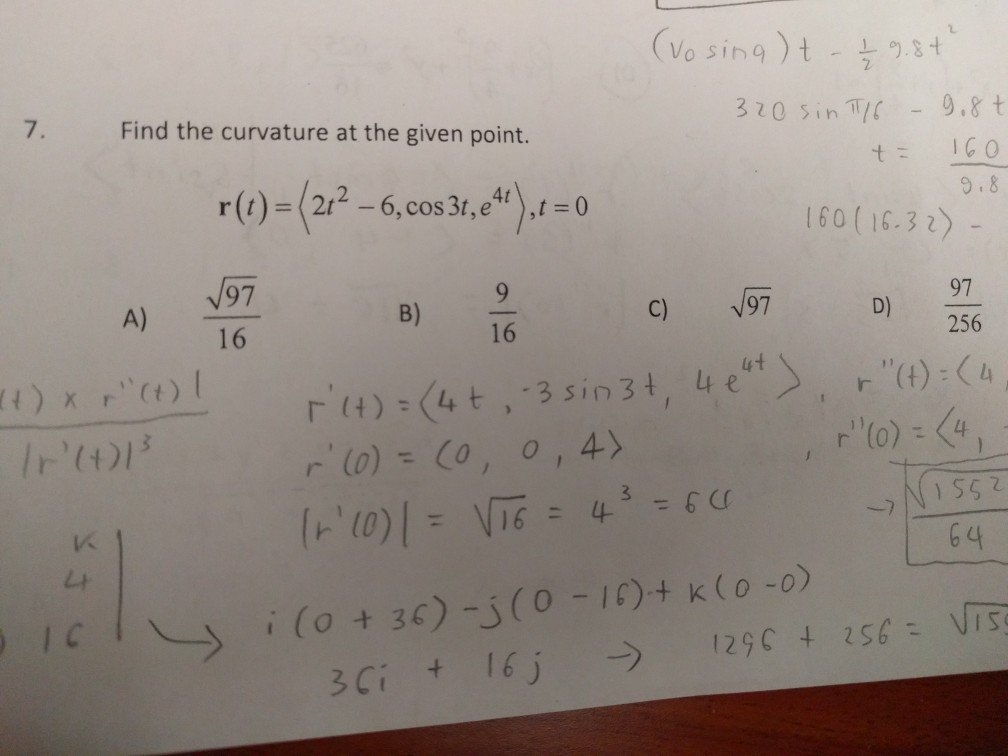 (v₀ sin θ) t - 1/2 9.8t²
320 sin π/6 - 9.8t
t = 160/9.8
160(16.32) -
7. Find the curvature at the given point.
r(t) = ⟨2t² − 6, cos 3t, e^{4t}⟩, t = 0
A) √97/16 B) 9/16 C) √97 D) 97/256
(t) x r''(t)| / |r'(t)|³
r'(t) = ⟨4t, -3 sin 3t, 4e^{4t}⟩, r''(t) = ⟨4,
r'(0) = ⟨0, 0, 4⟩, r''(0) = ⟨4, -
|r'(0)| = √16 = 4³ = 64 → √1552/64
K
4
16
→ i(0 + 36) - j(0 - 16) + k(0 - 0)
36i + 16j → 1296 + 256 = √15